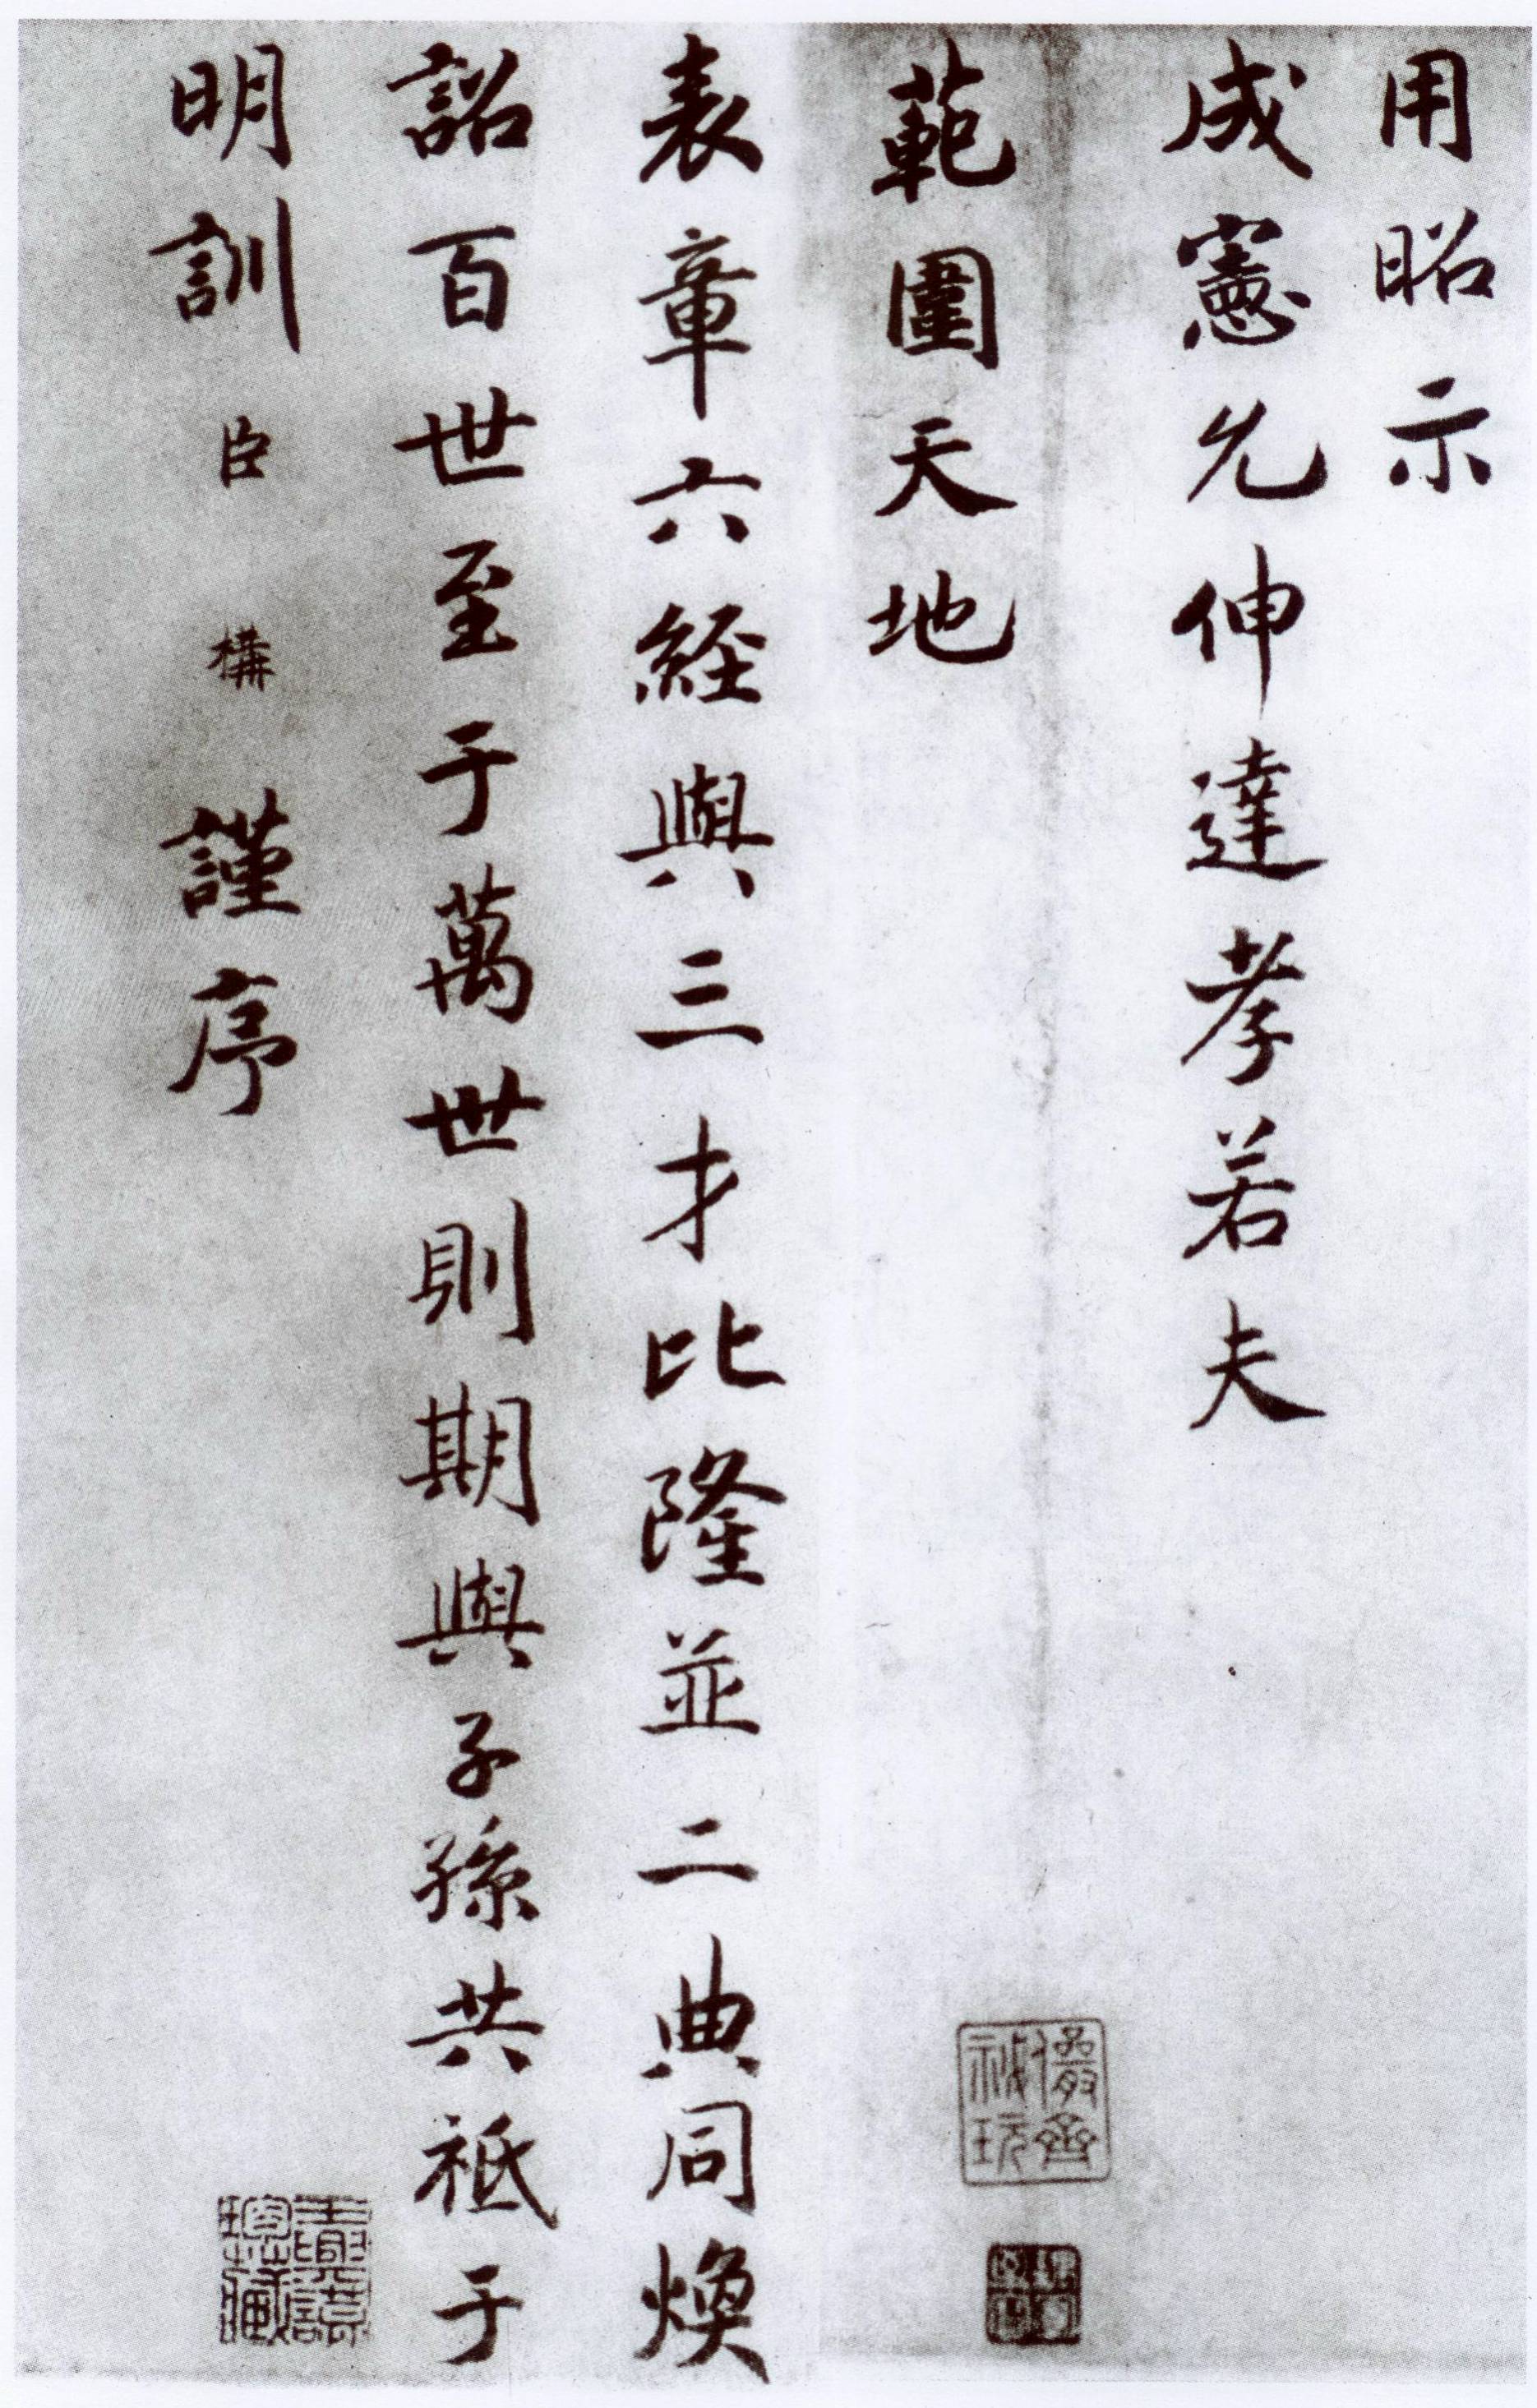 用昭示
成憲允伸達孝若夫
範圍天地
表章六經與三才比隆並二典同煥
詔百世至于萬世則期與子孫共祗于
明訓臣構謹序
儼齋秘玩